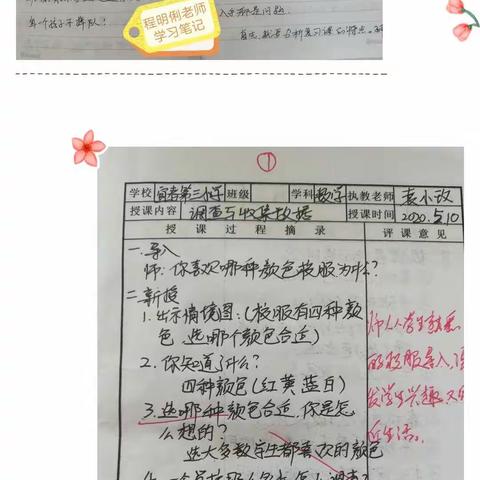 每个孩子不掉队?
程明俐老师
学习笔记
①
学校 宜君第三小学 班级 学科 数学 执教老师 袁小改
授课内容 调查与收集数据 授课时间 2020.5.10
授课过程摘录 评课意见
一.导入
师:你喜欢哪种颜色校服为什么?
二.新授
1.出示情境图:(校服有四种颜
色,选哪个颜色合适)
2.你知道了什么?
四种颜色(红黄蓝白)
3.选哪种颜色合适,你是怎
么想的?
选大多数学生都喜欢的颜色
师从学生熟悉
的校服导入,激
发学生兴趣,又贴
近生活。